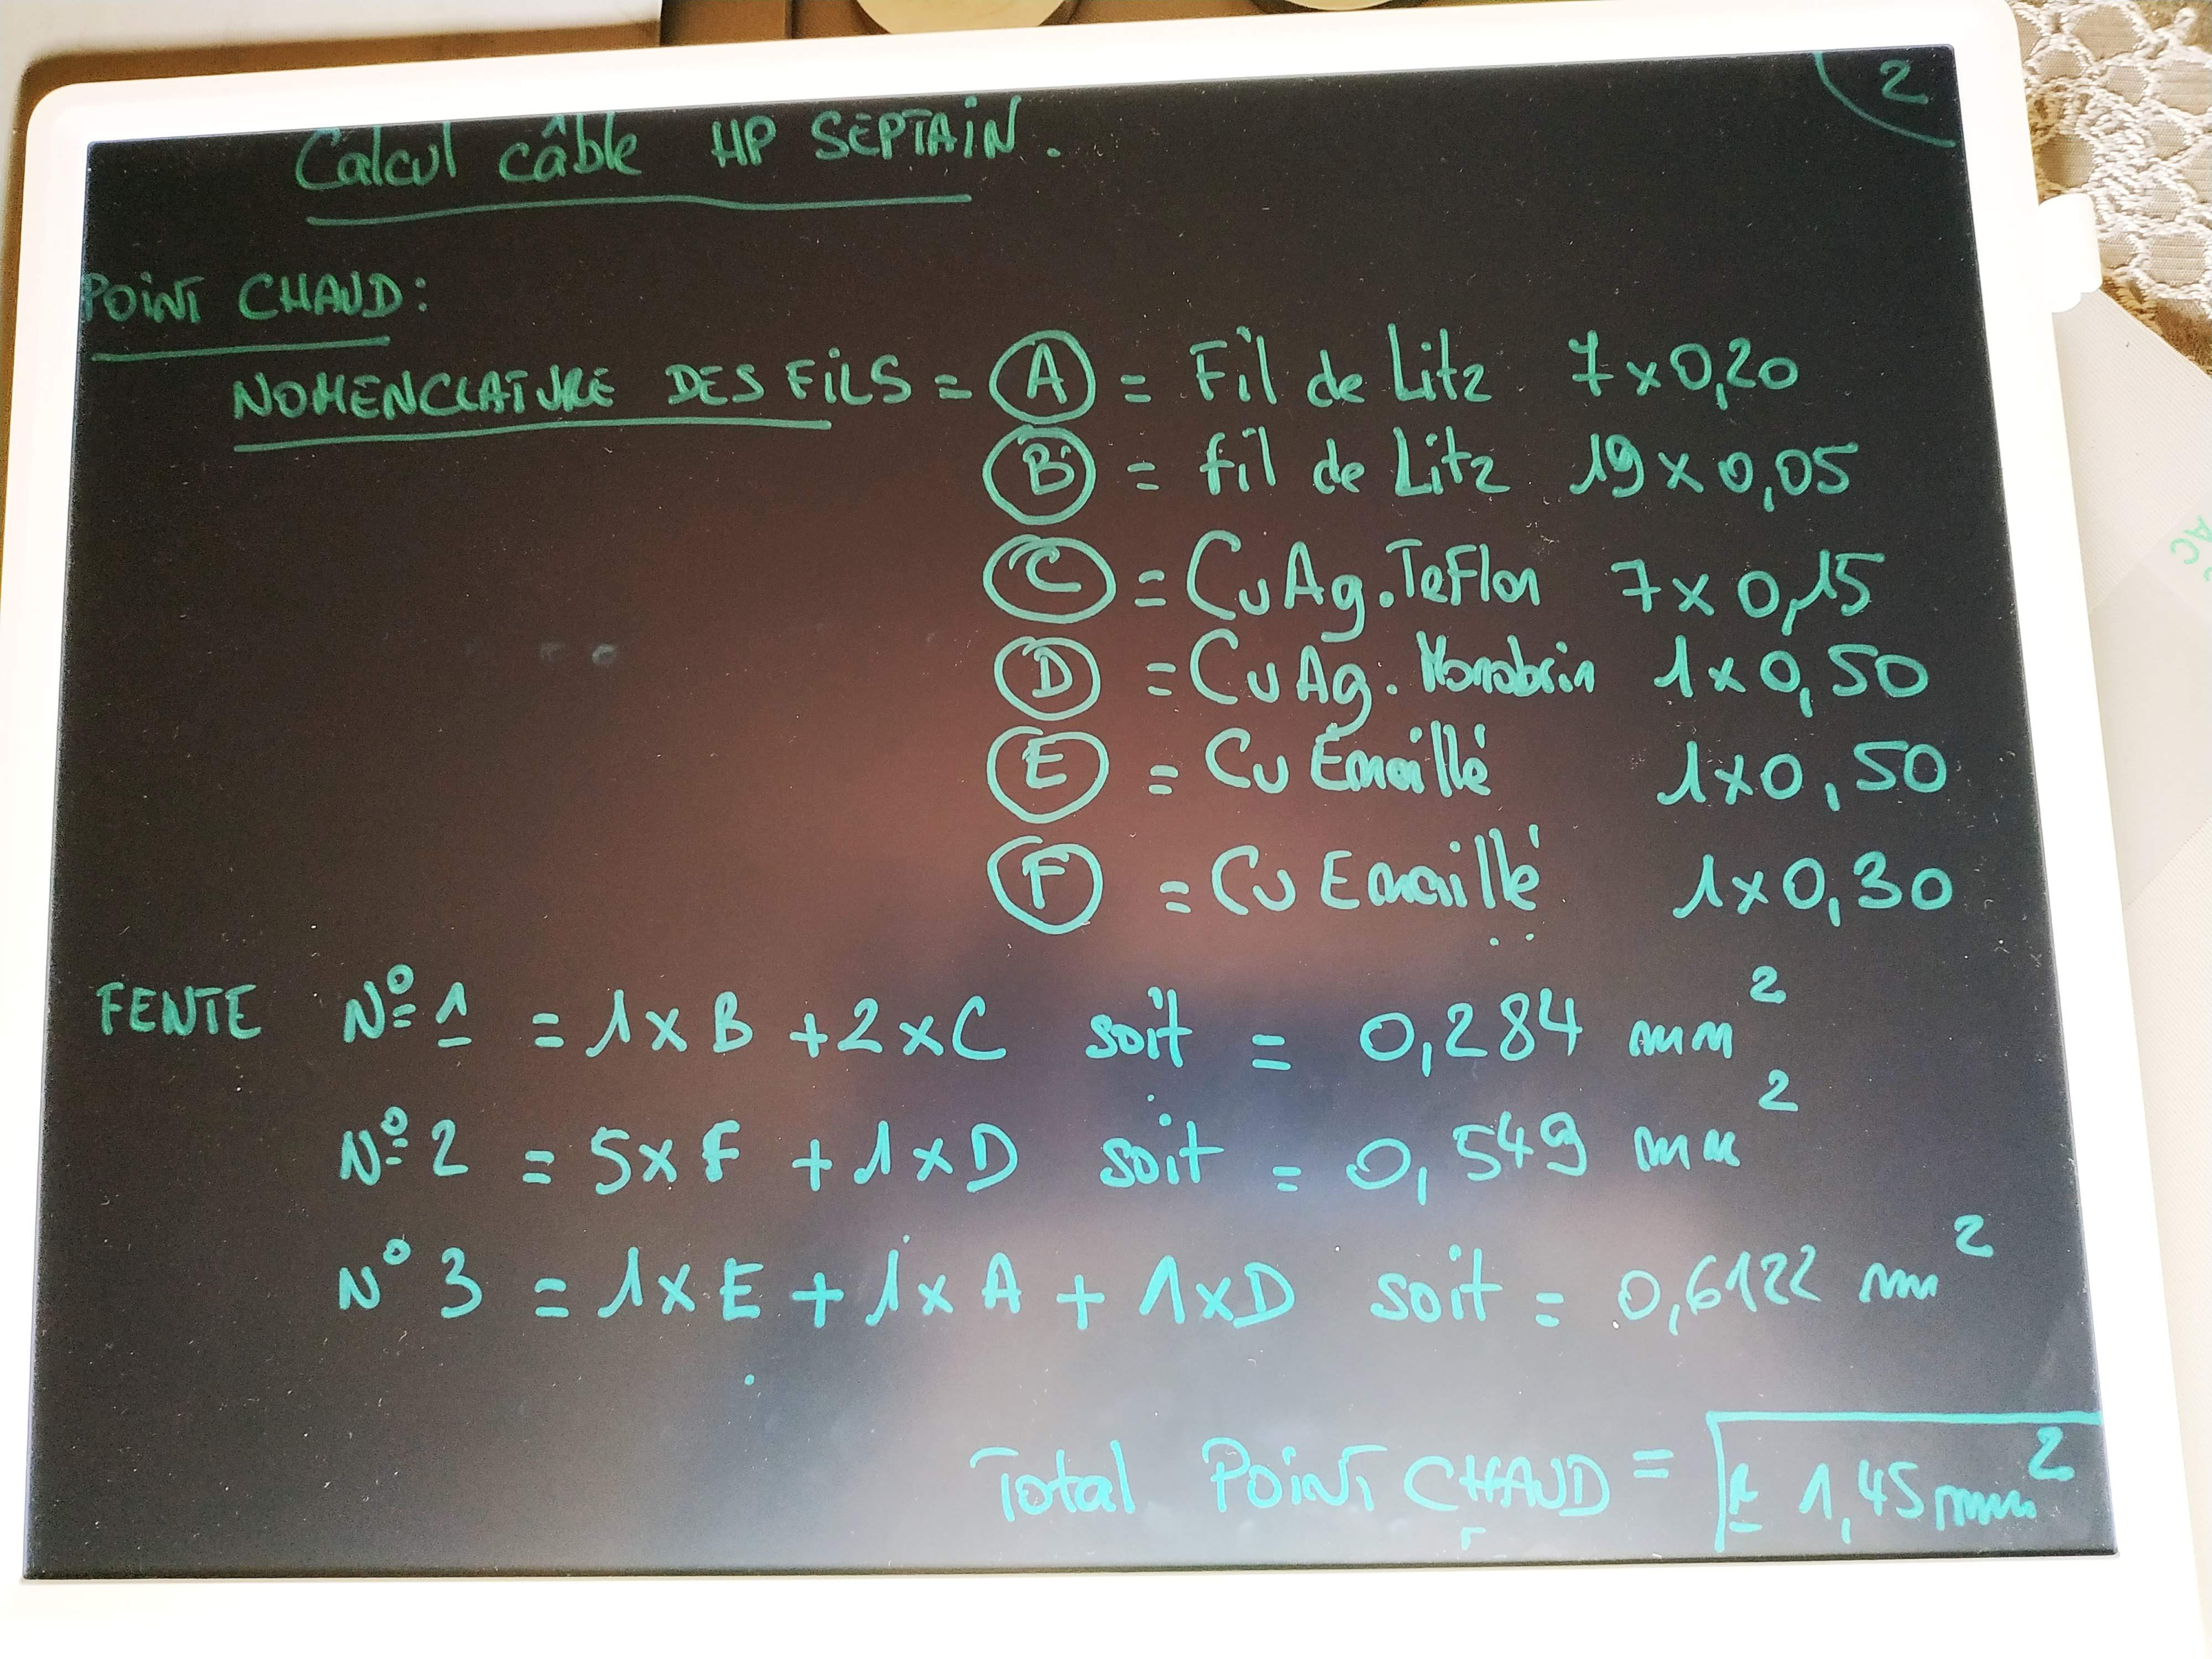 2
Calcul câble HP SEPTAIN.
POINT CHAUD:
NOMENCLATURE DES FILS = A = Fil de Litz 7x0,20
B = fil de Litz 19x0,05
C = CuAg.Teflon 7x0,15
D = CuAg. Monobrin 1x0,50
E = Cu Emaillé 1x0,50
F = Cu Emaillé 1x0,30
FENTE Nº 1 = 1xB +2xC soit = 0,284 mm²
Nº 2 = 5xF +1xD soit = 0,549 mm²
N° 3 = 1xE + 1xA + 1xD soit = 0,6122 mm²
Total POINT CHAUD = ± 1,45mm²